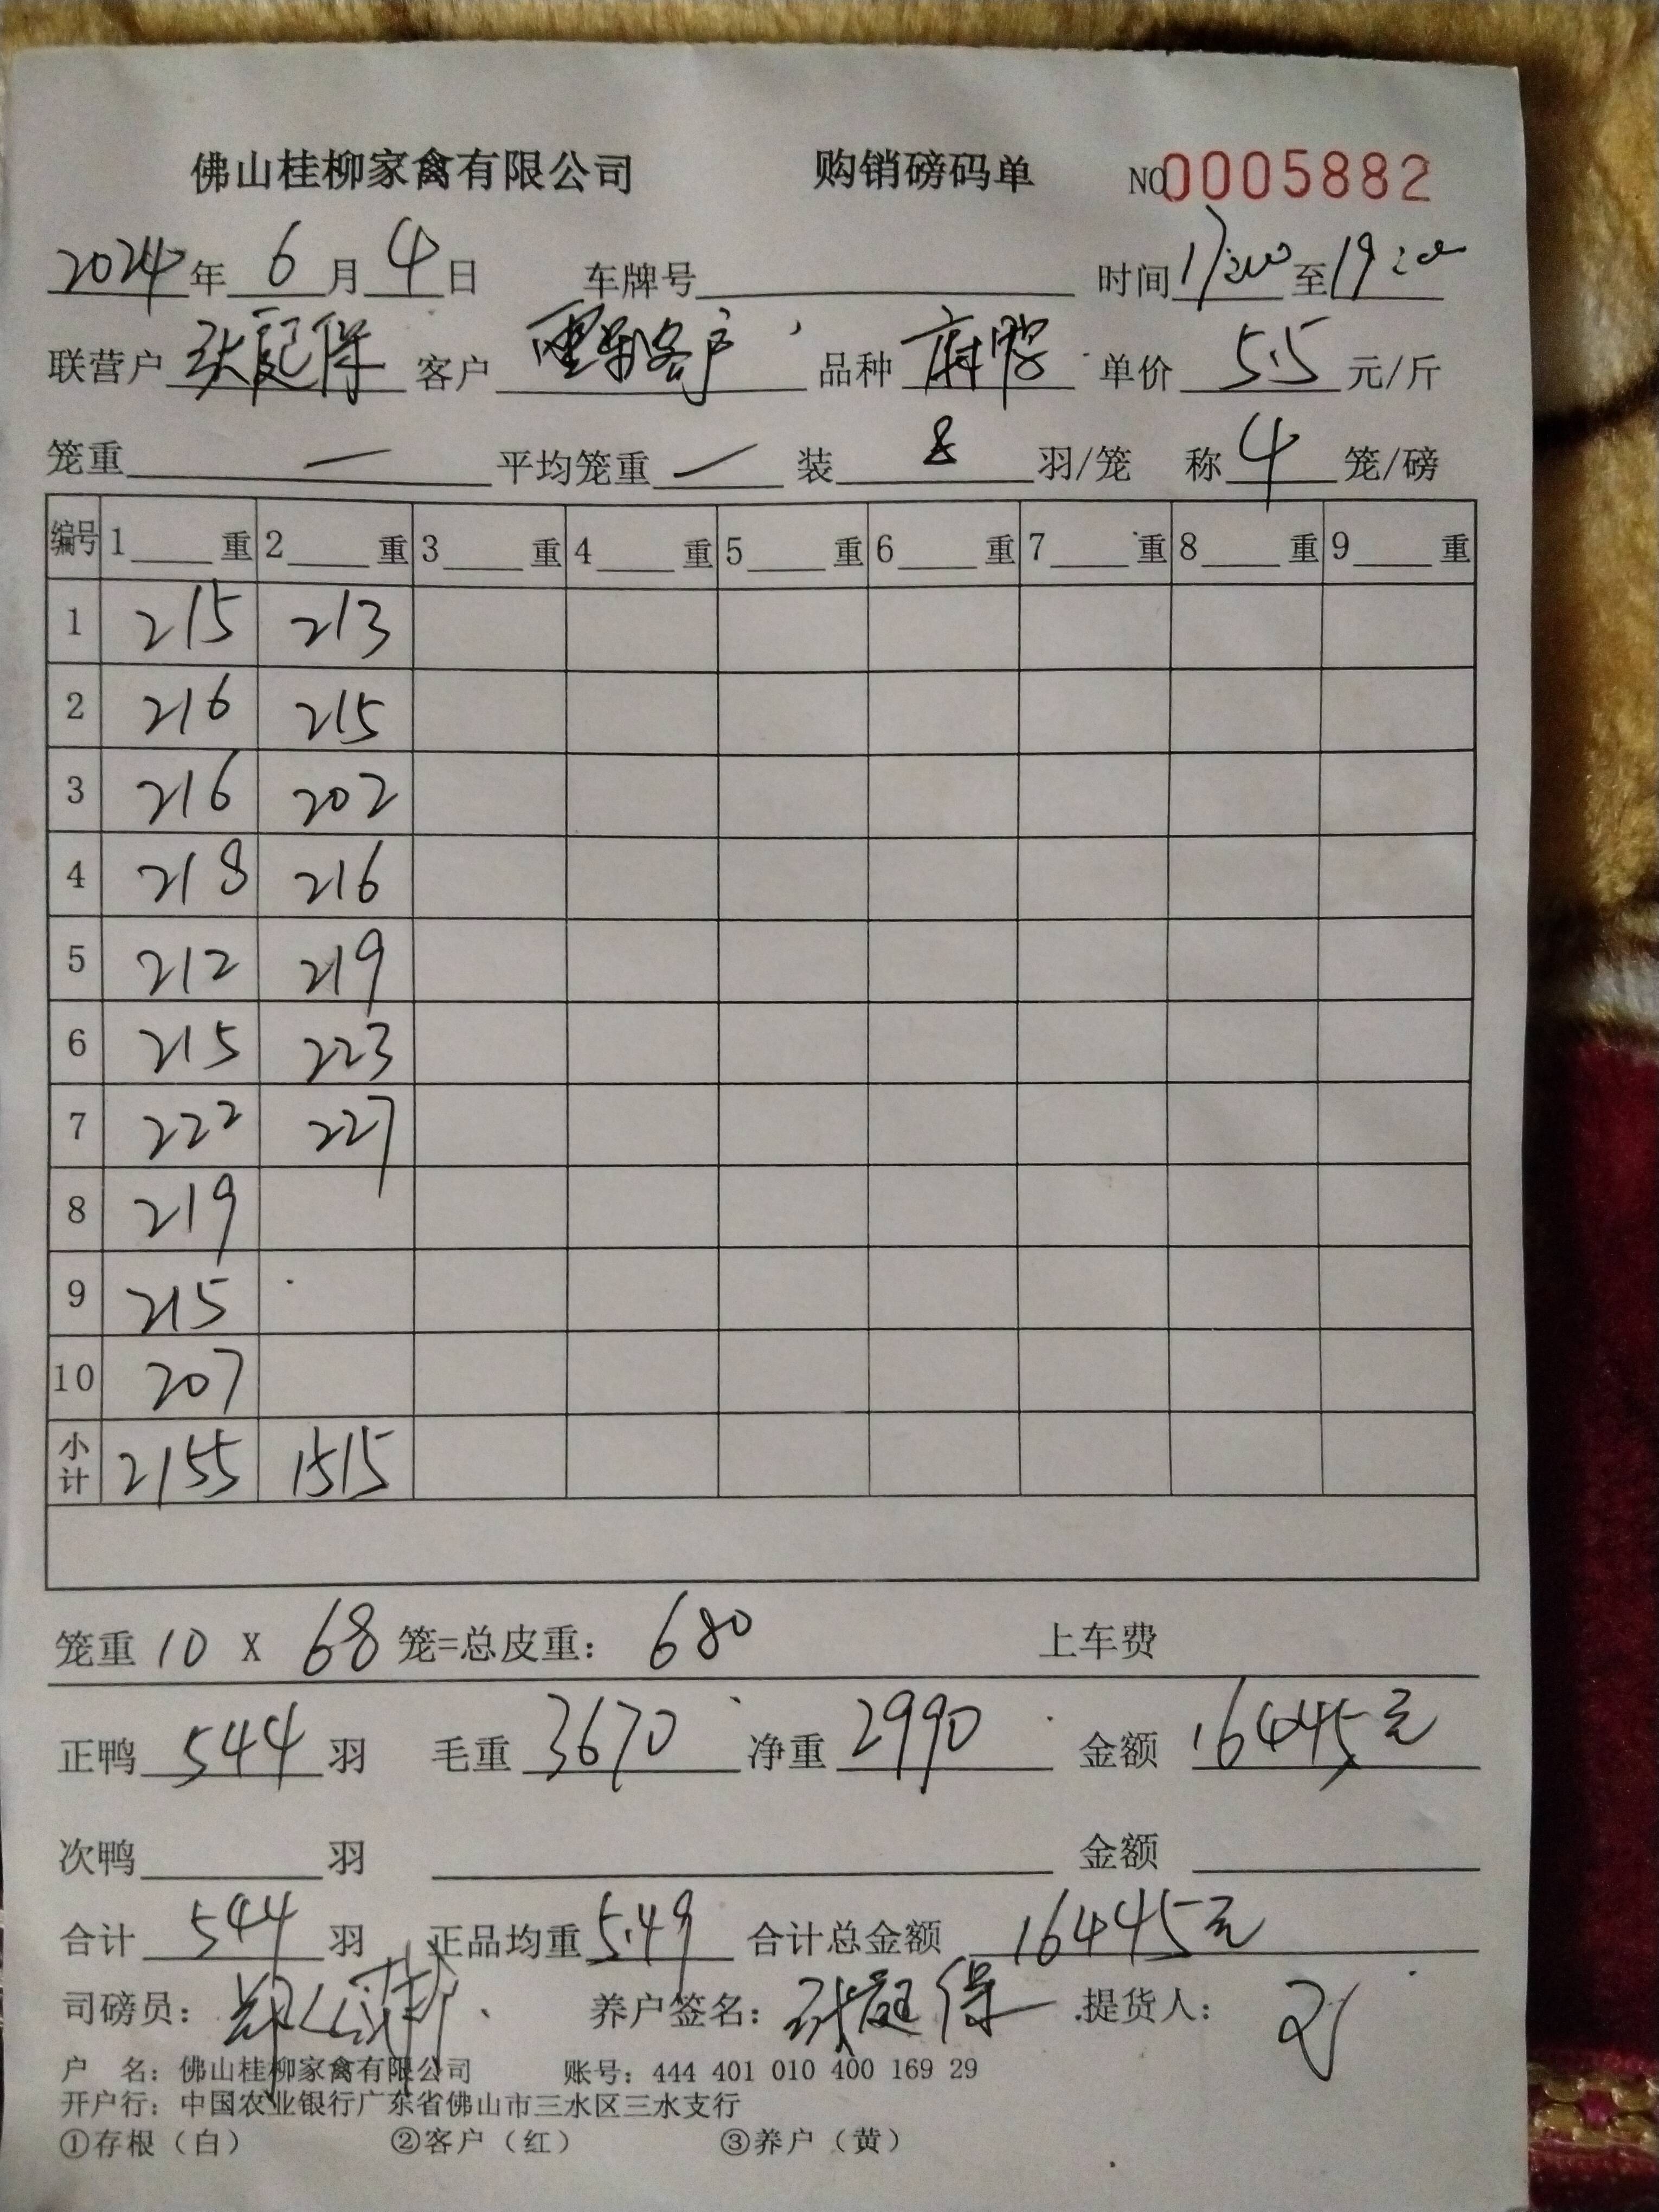 佛山桂柳家禽有限公司 购销磅码单 NO0005882
2024年 6月 4日 车牌号 时间17:00至19:00
联营户 张庭保 客户 客户 品种 麻鸭 单价 5.5 元/斤
笼重 — 平均笼重 — 装 8 羽/笼 称 4 笼/磅
编号 1 重 2 重 3 重 4 重 5 重 6 重 7 重 8 重 9 重
1 215 213
2 216 215
3 216 202
4 218 216
5 212 219
6 215 223
7 222 227
8 219
9 215
10 207
小计 2155 1515
笼重 10 X 68 笼=总皮重: 680 上车费
正鸭 544 羽 毛重 3670 净重 2990 金额 16445元
次鸭 羽 金额
合计 544 羽 正品均重 5.49 合计总金额 16445元
司磅员: 养户签名: 张庭保 提货人:
户 名: 佛山桂柳家禽有限公司 账号: 444 401 010 400 169 29
开户行: 中国农业银行广东省佛山市三水区三水支行
①存根(白) ②客户(红) ③养户(黄)